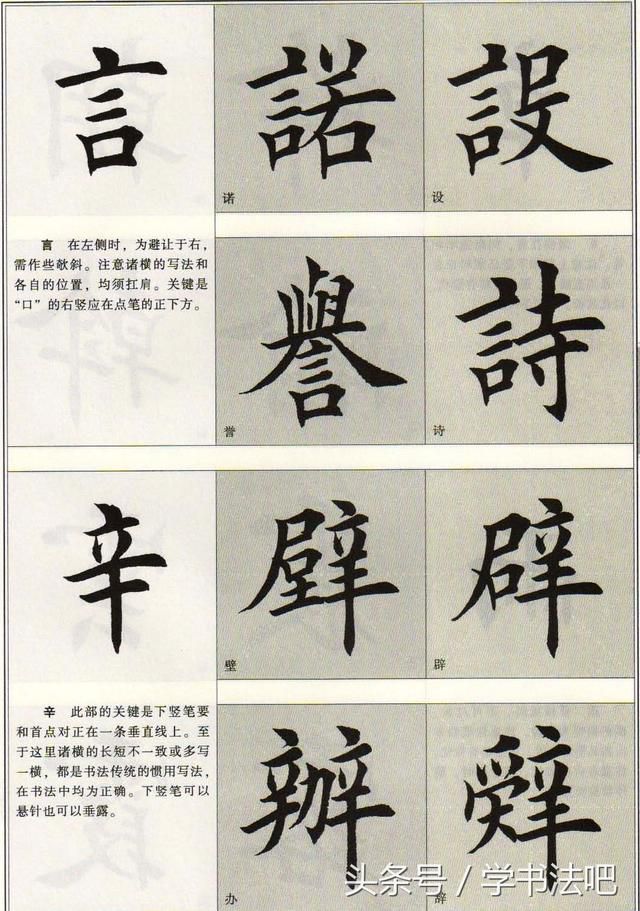 言
諾
設
诺
设
言 在左侧时，为避让于右，
需作些欹斜。注意诸横的写法和
各自的位置，均须扛肩。关键是
“口”的右竖应在点笔的正下方。
譽
詩
誉
诗
辛
壁
辟
壁
辟
辛 此部的关键是下竖笔要
和首点对正在一条垂直线上。至
于这里诸横的长短不一致或多写
一横，都是书法传统的惯用写法，
在书法中均为正确。下竖笔可以
悬针也可以垂露。
辦
辤
办
辞
头条号／学书法吧